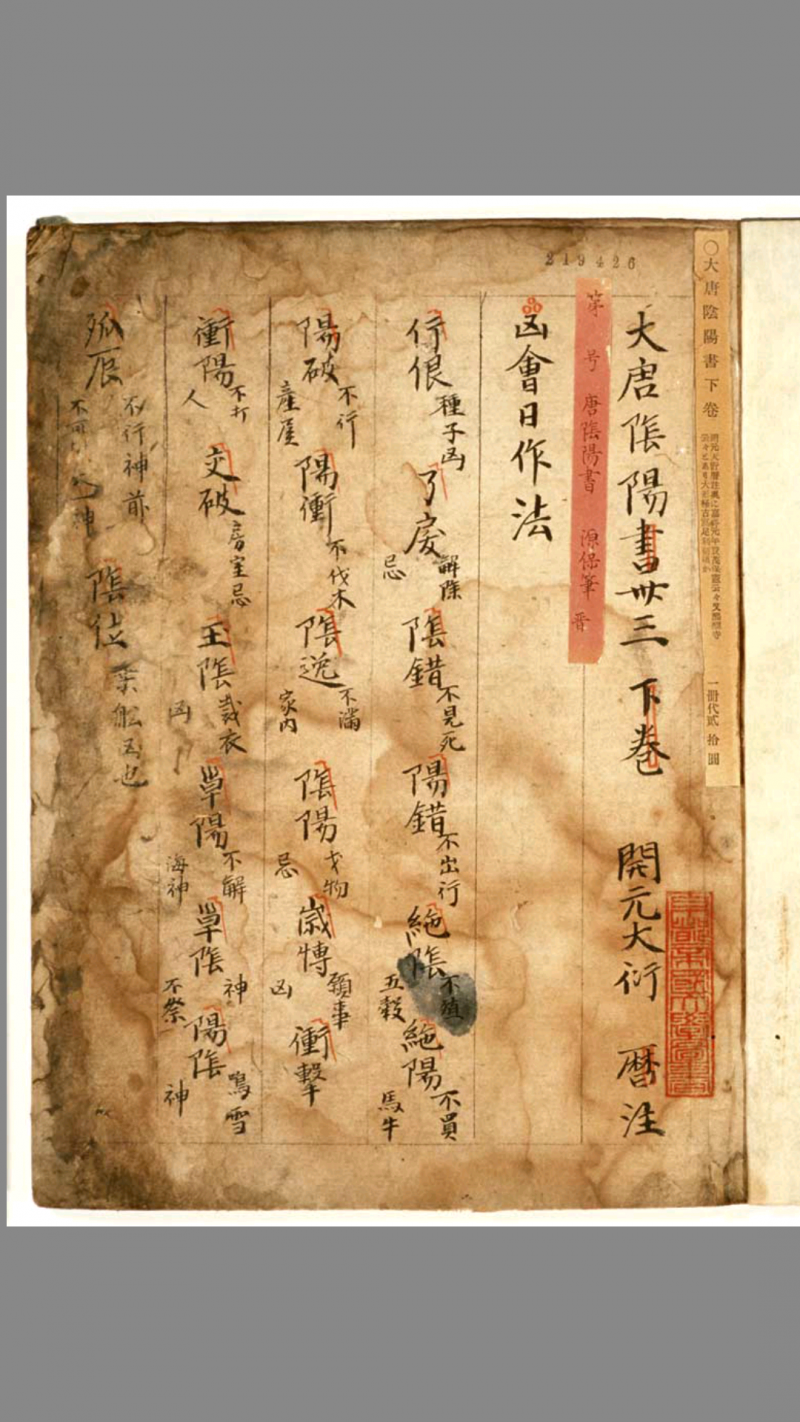 219426
〇大唐陰陽書下卷
一冊代貳拾圓
大唐陰陽書卅三 下卷 開元大衍 曆注
第 号 唐陰陽書 源保筆 晋
凶會日作法
行佷 種子凶 了戾 解除忌 陰錯 不見死 陽錯 不出行 絶陰 不殖五穀 絶陽 不買馬牛
陽破 不行產屋 陽衝 不伐木 陰 不滿家内 陰陽 忌 歲博 領事凶 衝擊
衝陽 不打人 交破 房室忌 王陰 裁衣凶 草陽 不解海神 草陰 神不祭 陽陰 神
孤辰 不行神前 陰位 乘舩凶也